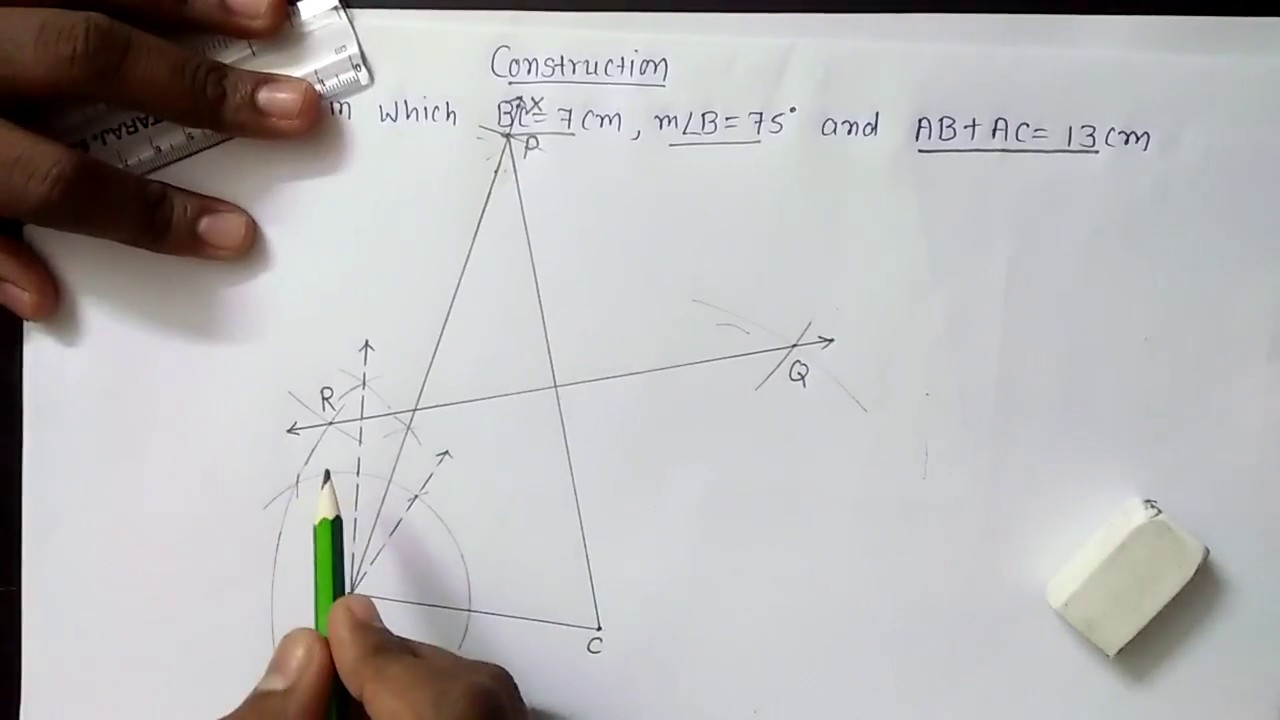 Construction
in which BC = 7cm, m∠B = 75° and AB + AC = 13cm
X
P
R
Q
C